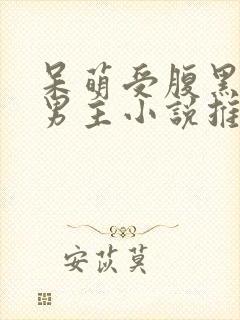 呆萌受腹黑
男主小説推
安苡莫